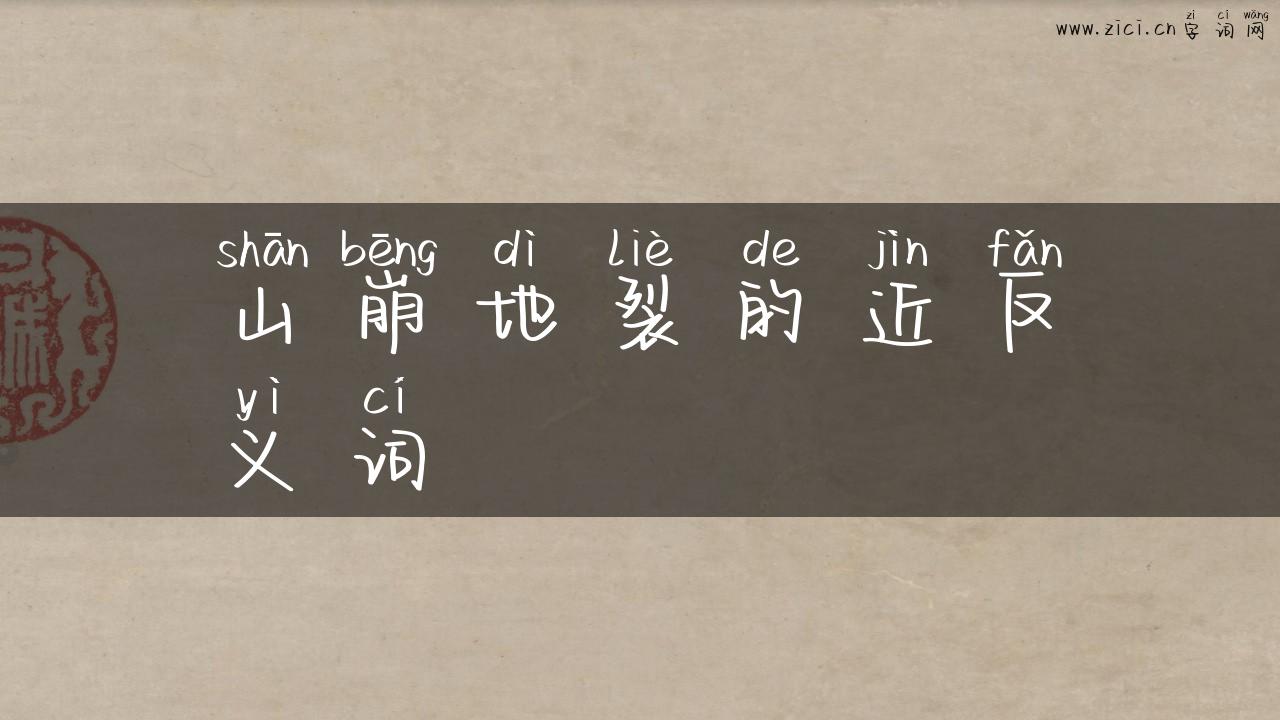 zì cí wǎng
www.zici.cn 字词网
shān bēng dì liè de jìn fǎn
山崩地裂的近反
yì cí
义词